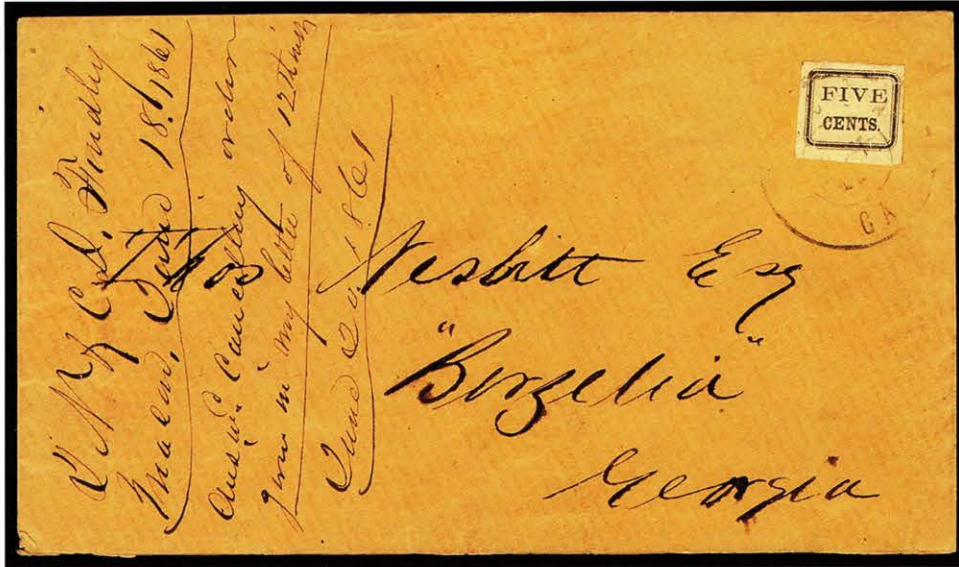 FIVE
CENTS.
GA
Thos Nesbitt Esq
"Berzelia"
Georgia
R N & C D. Findlay
Macon, June 18. 1861
Ans'd Cancelling order
given in my letter of 12th inst
June 20. 1861